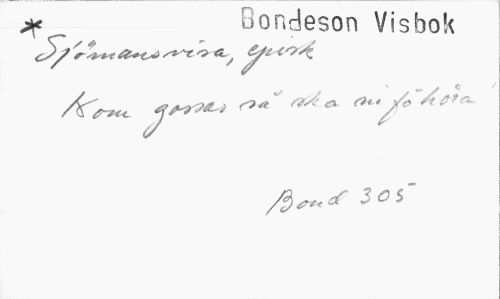 Bondeson Visbok
* Sjömansvisa, episk
Kom gossar så ska ni få höra
Bond 305